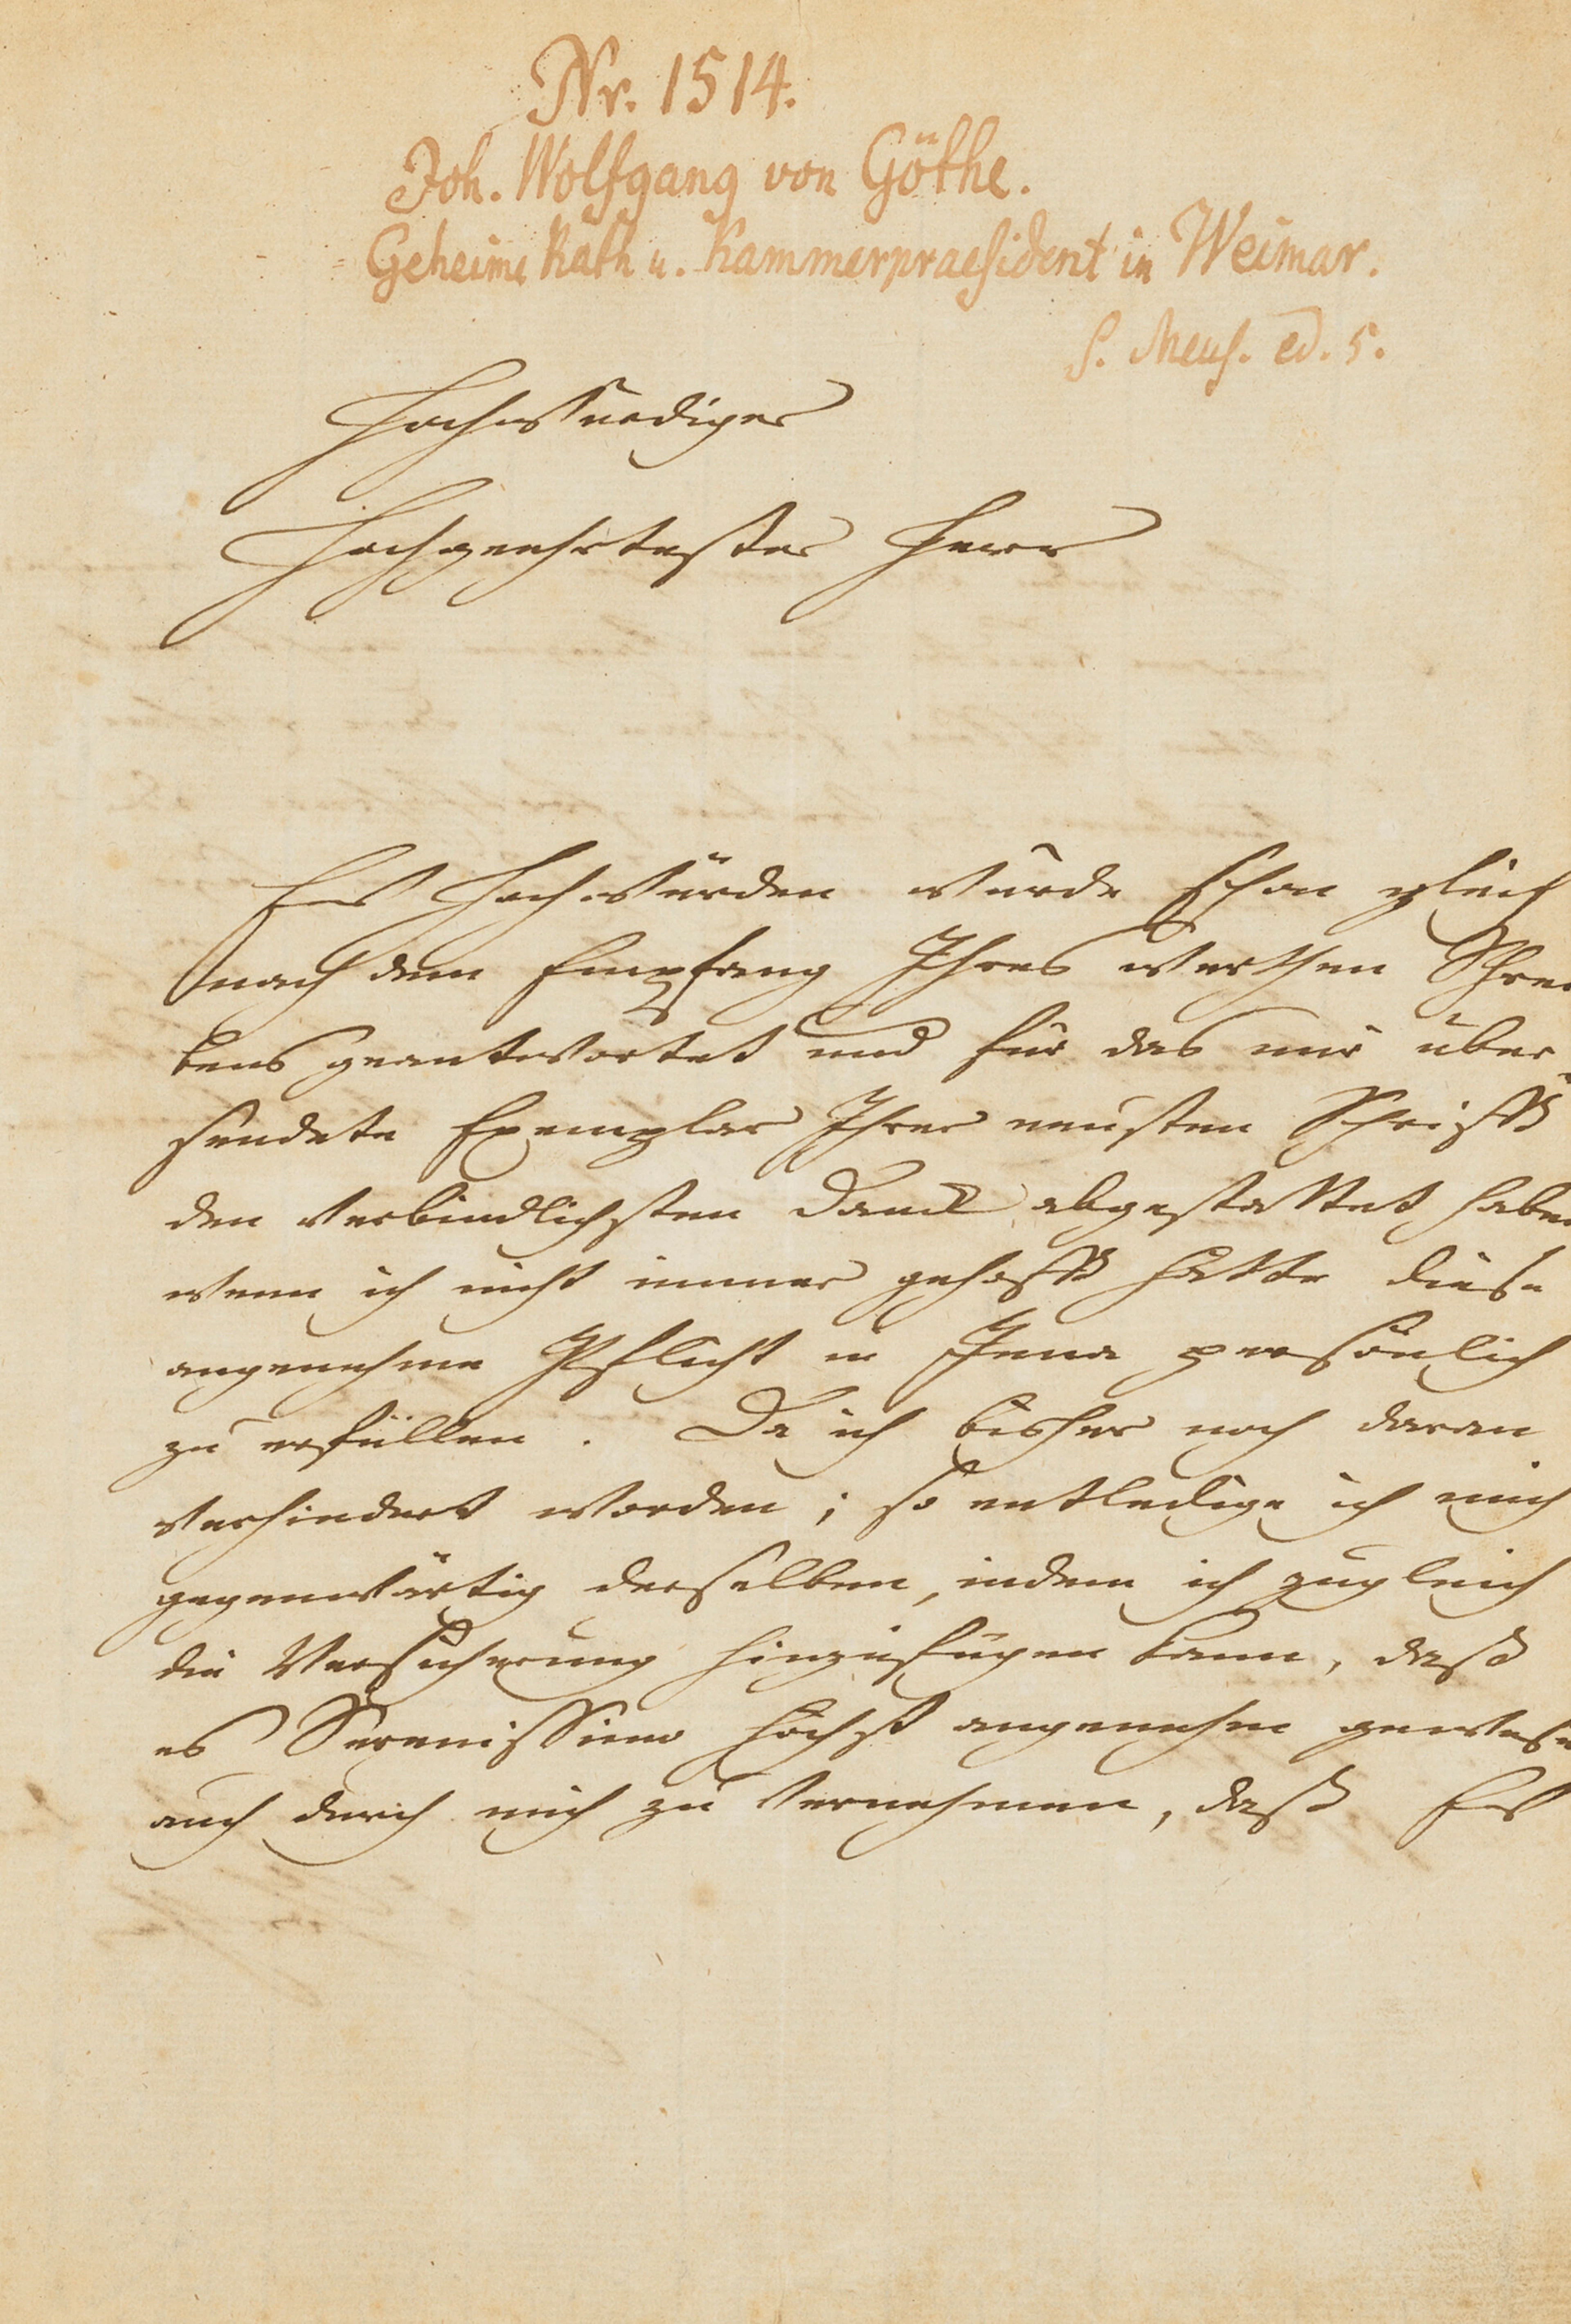 Nr. 1514.
Joh. Wolfgang von Göthe.
Geheime Rath u. Kammerpraesident in Weimar.
S. Meus. ed. 5.
Hochwürdiger
Hochgeehrtester Herr
Ew Hochwürden würde schon gleich
nach dem Empfang Ihres werthen Schrei
bens geantwortet und für das mir über
sendete Exemplar Ihrer neusten Schrifft
den verbindlichsten Danck abgestattet haben
wenn ich nicht immer gehofft hätte diese
angenehme Pflicht in Jena persönlich
zu erfüllen. Da ich bisher noch daran
verhindert worden; so entledige ich mich
gegenwärtig derselben, indem ich zugleich
die Versicherung hinzufügen kann, daß
es Serenissimo höchst angenehm gewesen
auch durch mich zu vernehmen, daß Ew